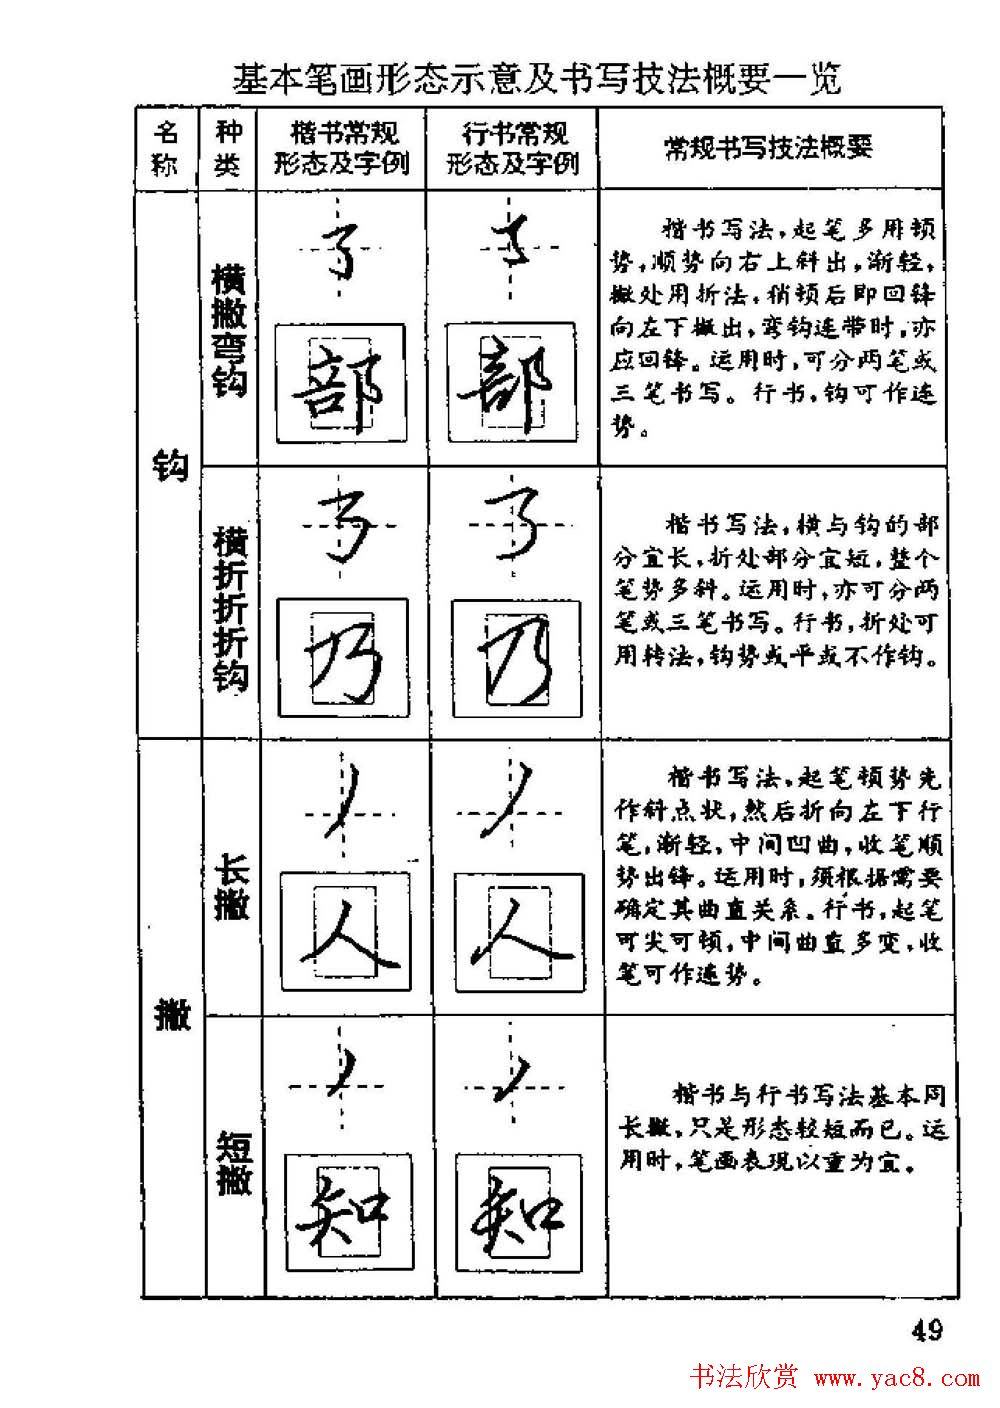 基本笔画形态示意及书写技法概要一览
名称
种类
楷书常规
形态及字例
行书常规
形态及字例
常规书写技法概要
钩
横撇弯钩
部
部
楷书写法，起笔多用顿
势，顺势向右上斜出，渐轻，
撇处用折法，稍顿后即回锋
向左下撇出，弯钩连带时，亦
应回锋。运用时，可分两笔或
三笔书写。行书，钩可作连
势。
横折折折钩
乃
乃
楷书写法，横与钩的部
分宜长，折处部分宜短，整个
笔势多斜。运用时，亦可分两
笔或三笔书写。行书，折处可
用转法，钩势或平或不作钩。
撇
长撇
人
人
楷书写法，起笔顿势先
作斜点状，然后折向左下行
笔，渐轻，中间凹曲，收笔顺
势出锋。运用时，须根据需要
确定其曲直关系。行书，起笔
可尖可顿，中间曲直多变，收
笔可作连势。
短撇
知
知
楷书与行书写法基本同
长撇，只是形态较短而已。运
用时，笔画表现以重为宜。
49
书法欣赏 www.yac8.com